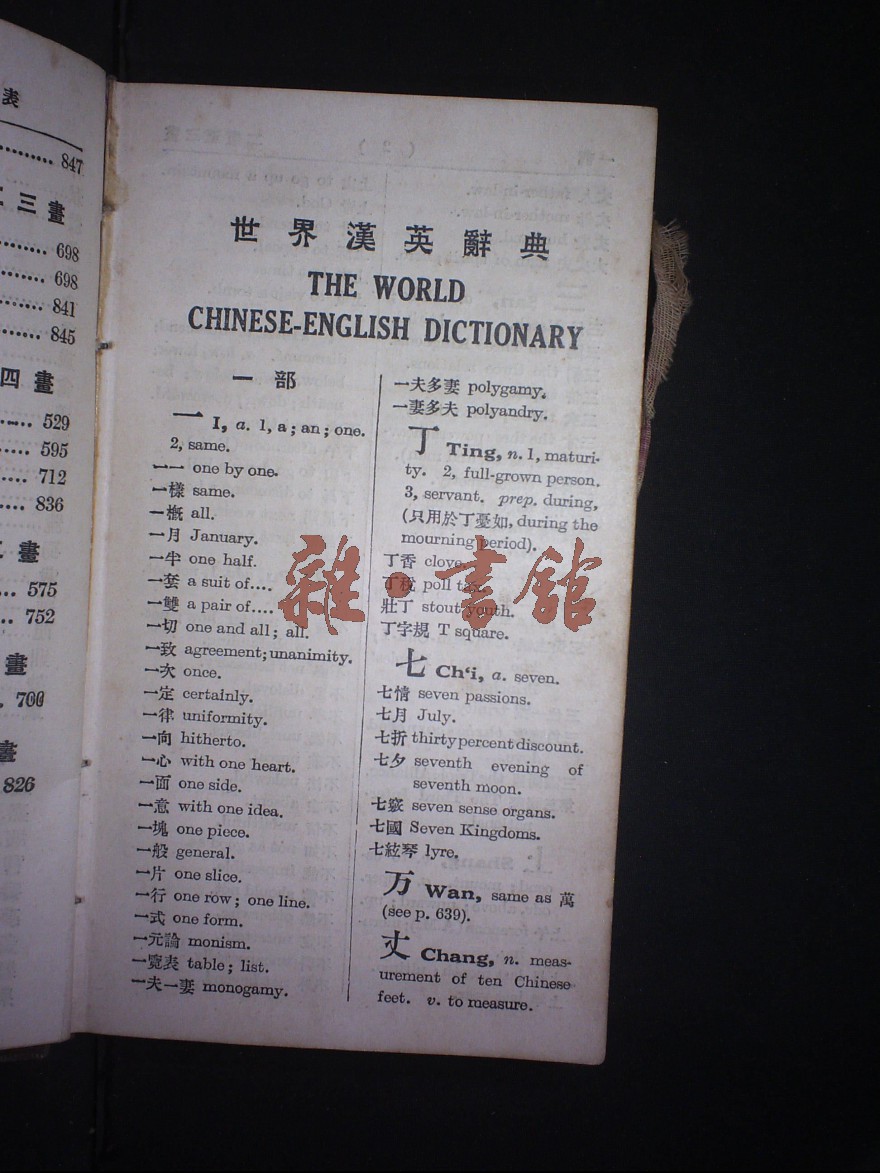 表
847
三畫
698
698
841
845
四畫
529
595
712
836
畫
575
752
畫
700
畫
826
世界漢英辭典
THE WORLD
CHINESE-ENGLISH DICTIONARY
一部
一 I, a. 1, a; an; one.
2, same.
一一 one by one.
一樣 same.
一概 all.
一月 January.
一半 one half.
一套 a suit of....
一雙 a pair of....
一切 one and all; all.
一致 agreement; unanimity.
一次 once.
一定 certainly.
一律 uniformity.
一向 hitherto.
一心 with one heart.
一面 one side.
一意 with one idea.
一塊 one piece.
一般 general.
一片 one slice.
一行 one row; one line.
一式 one form.
一元論 monism.
一覽表 table; list.
一夫一妻 monogamy.
一夫多妻 polygamy.
一妻多夫 polyandry.
丁 Ting, n. 1, maturi-
ty. 2, full-grown person.
3, servant. prep. during,
(只用於丁憂如, during the
mourning period).
丁香 clove.
丁稅 poll tax.
壯丁 stout youth.
丁字規 T square.
七 Ch'i, a. seven.
七情 seven passions.
七月 July.
七折 thirty percent discount.
七夕 seventh evening of
seventh moon.
七竅 seven sense organs.
七國 Seven Kingdoms.
七絃琴 lyre.
万 Wan, same as 萬
(see p. 639).
丈 Chang, n. meas-
urement of ten Chinese
feet. v. to measure.
雜·書館